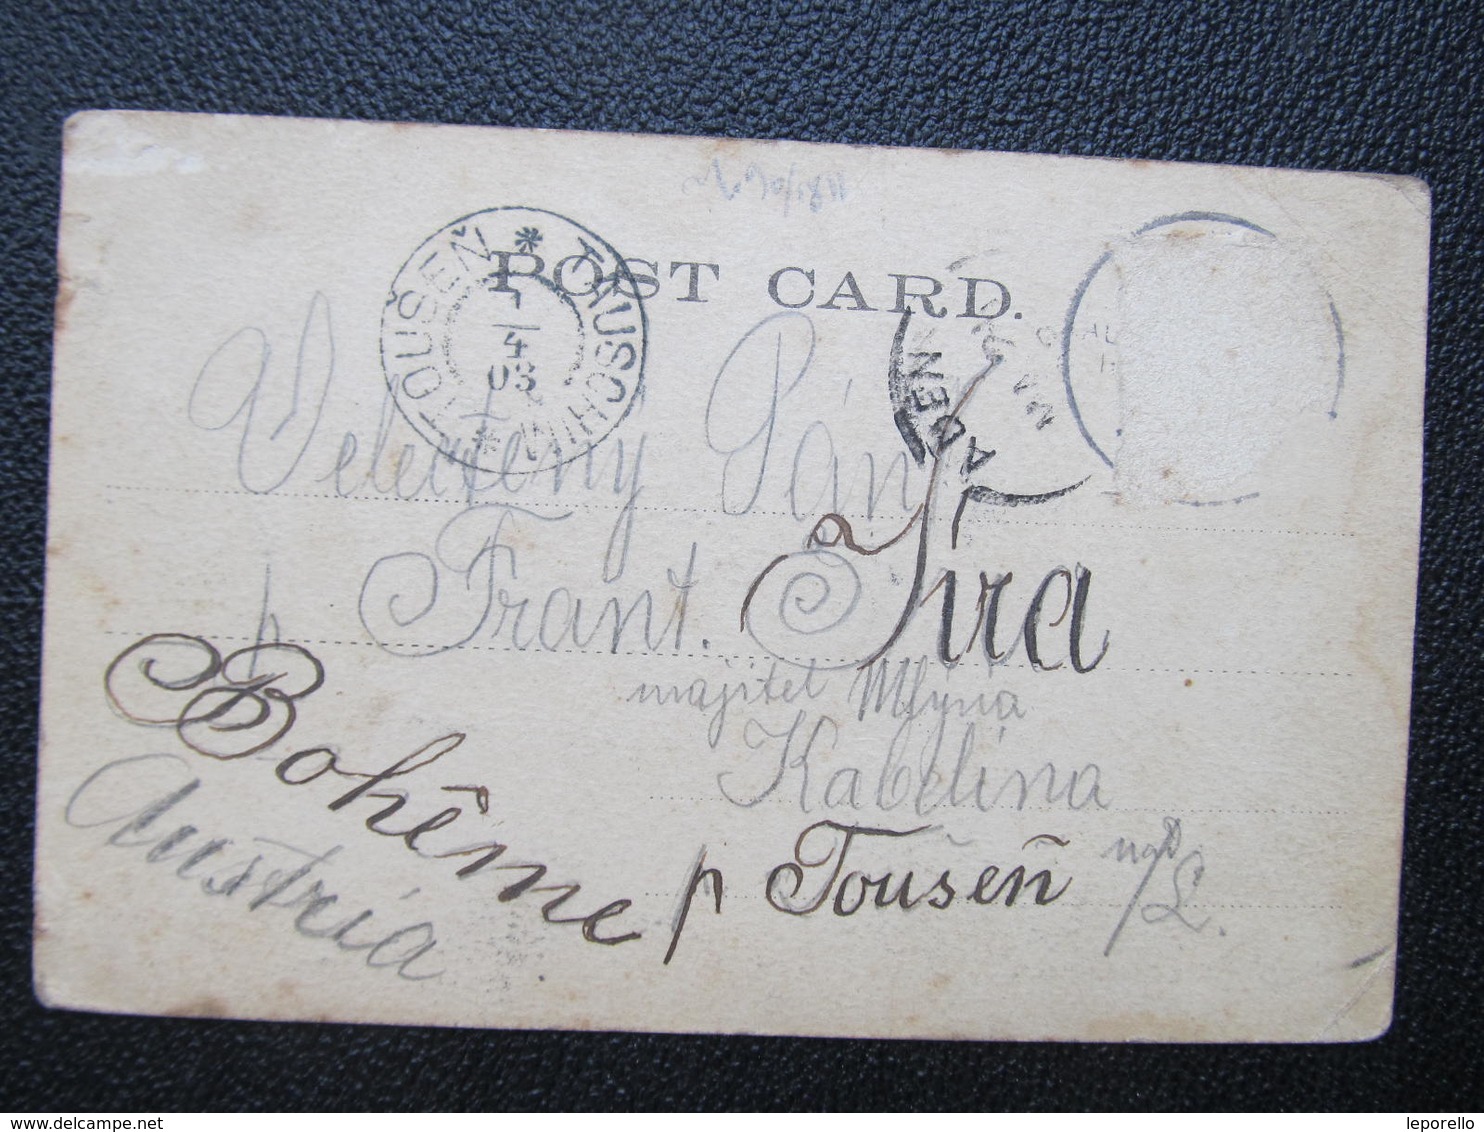 POST CARD.
TOUŠEŇ * TAUSCHIM *
1
4
03
ADEN
Velectěný Pán
Frant. Jira
majitel Mlýna
Kabelína
p Touseñ
Bohême
Austria
delcampe.net
leporello